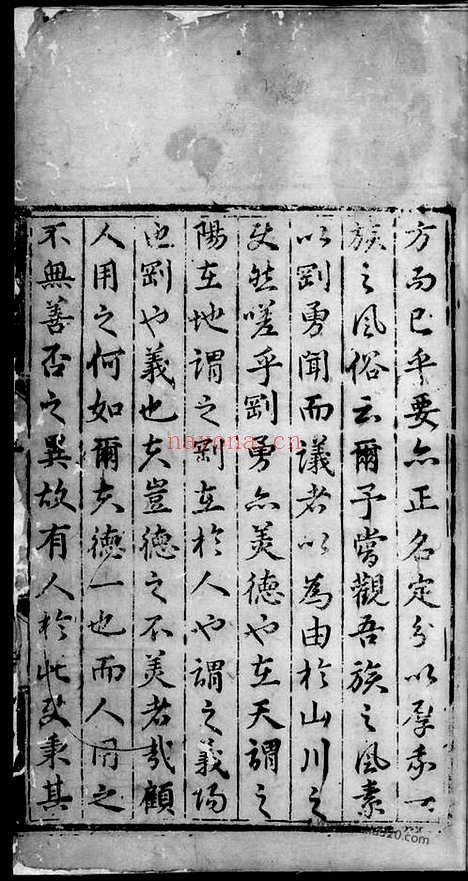 方而已乎要亦正名定分以厚我一
族之风俗云爾予嘗觀吾族之风素
以剛勇聞而議者以為由於山川之
使然嗟乎剛勇亦美德也在天謂之
陽在地謂之剛在於人也謂之義陽
也剛也義也夫豈德之不美者哉顧
人用之何如爾夫德一也而人用之
不無善否之異故有人於此使秉其
nayona.cn